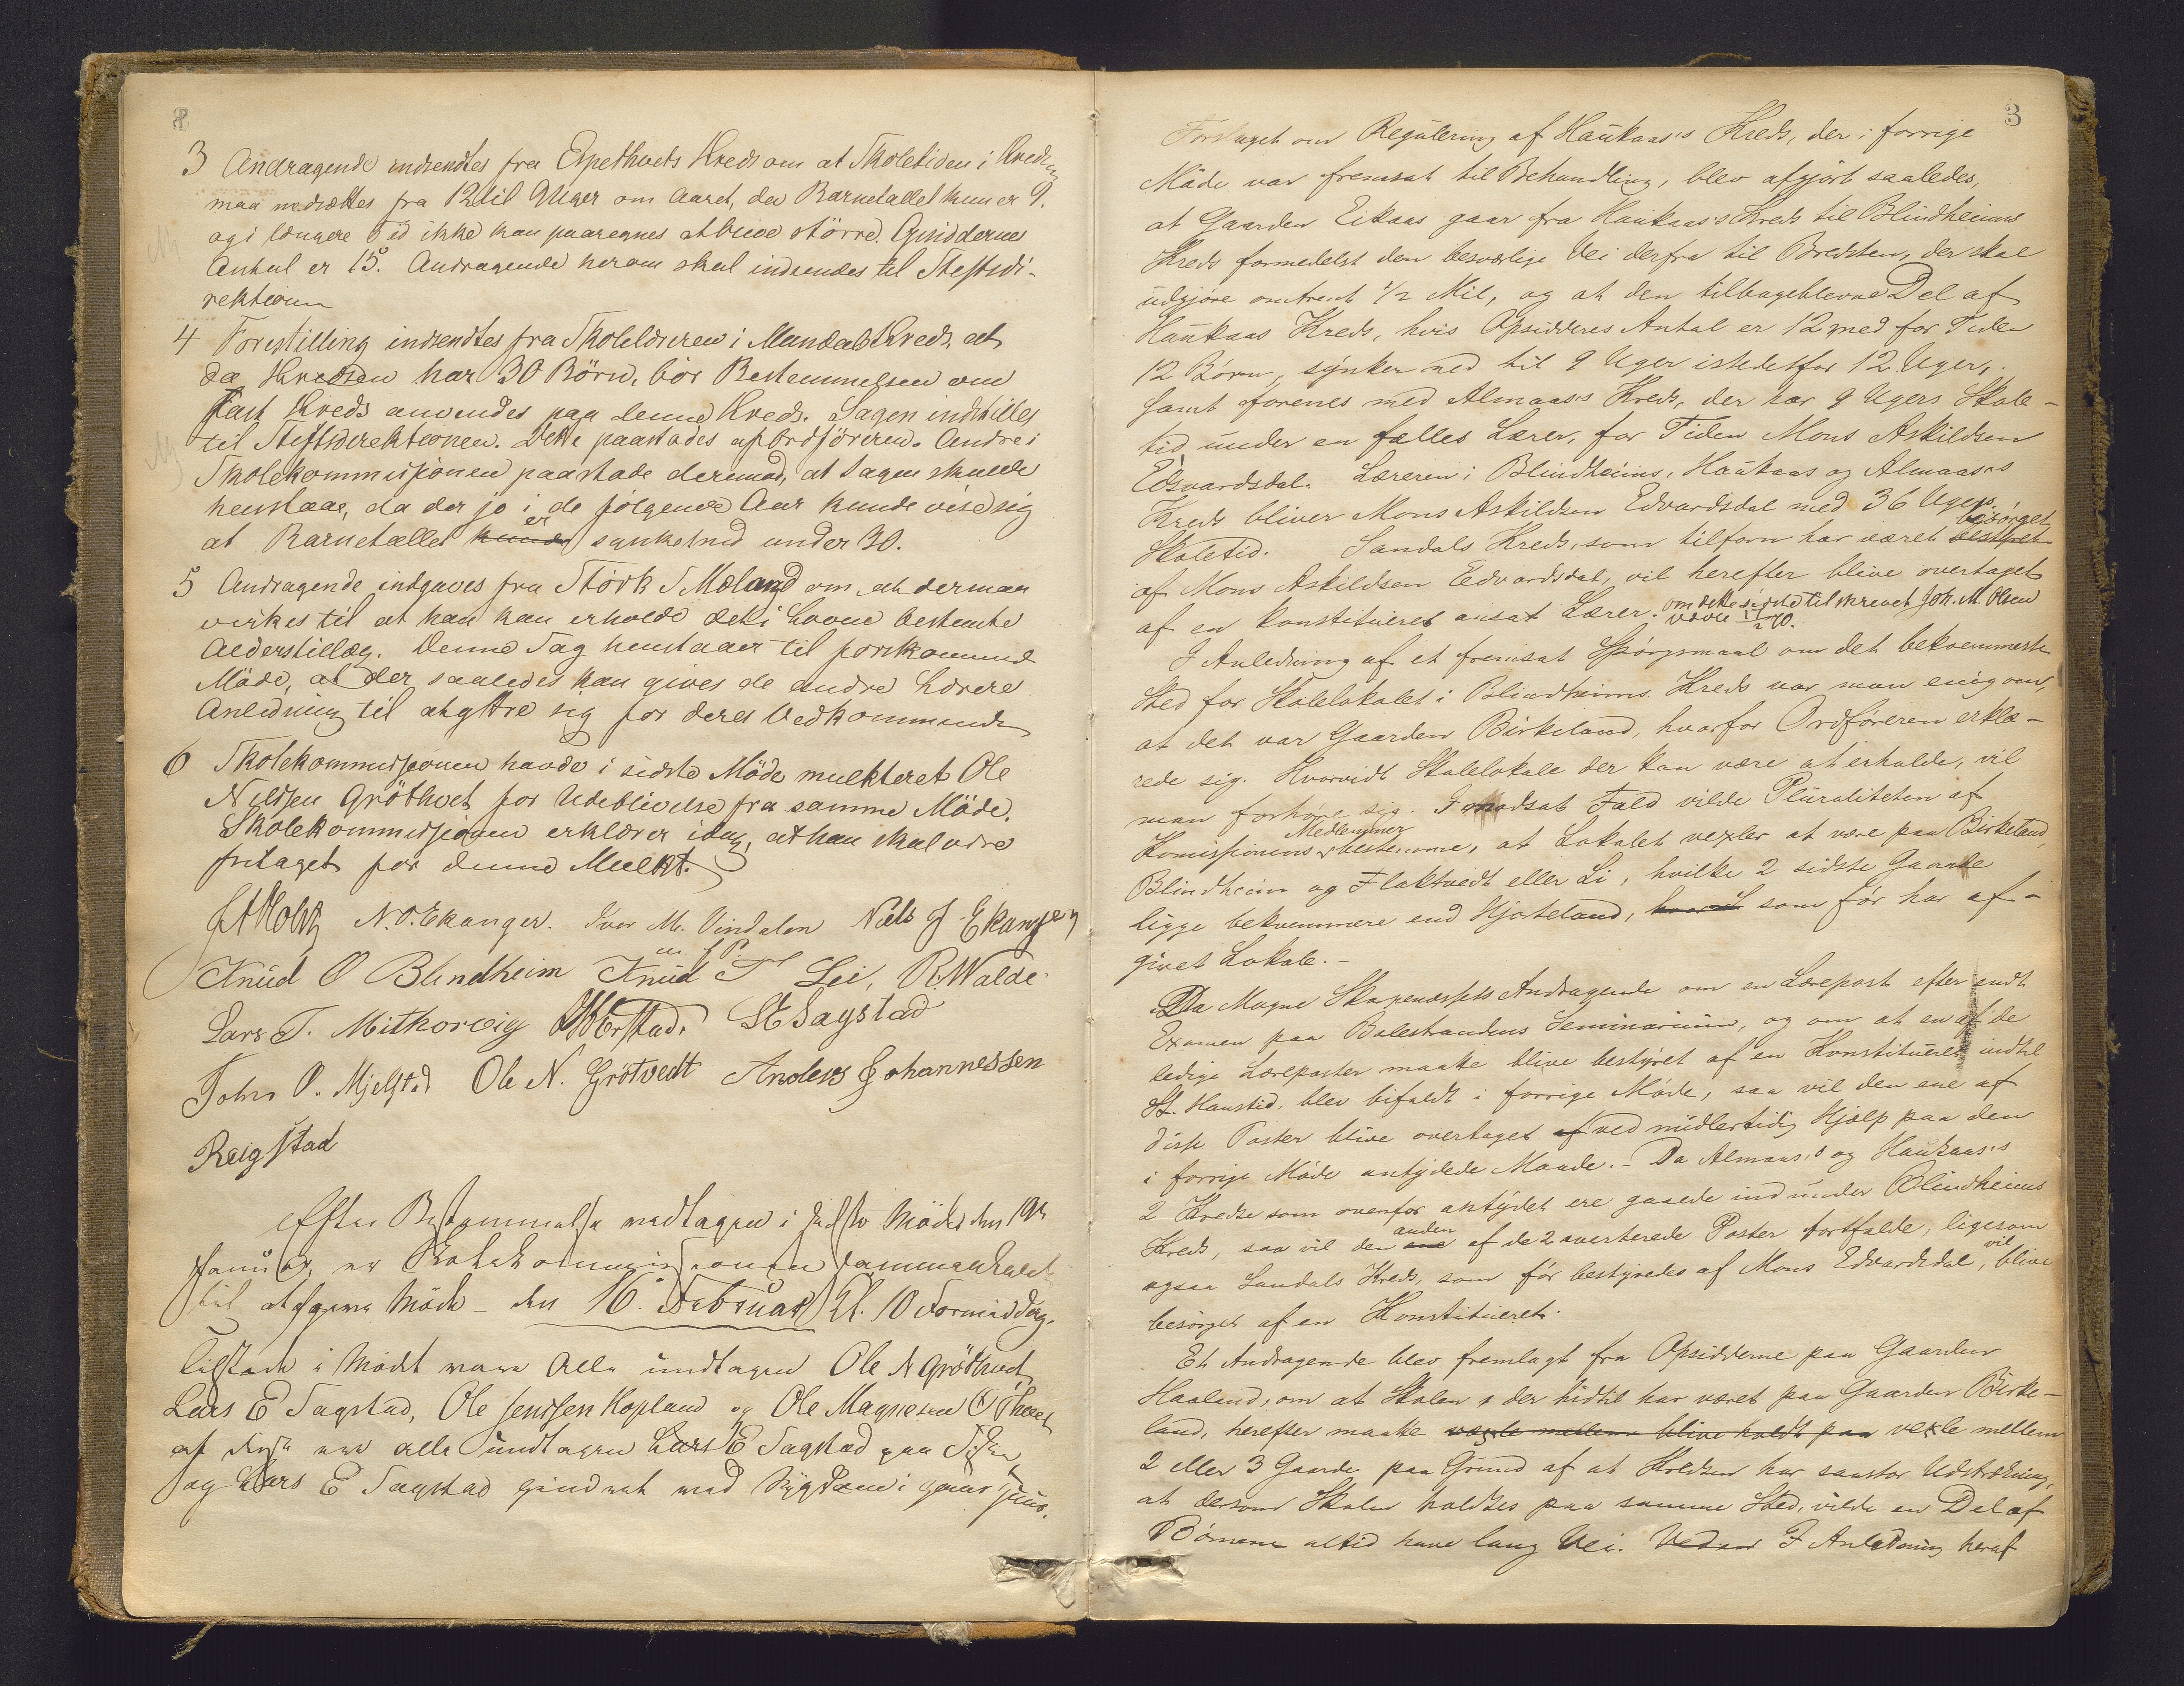 8
3 Andragende indsendtes fra Espethvets Kreds om at Skoletiden i Kredsen
maa nedsættes fra 12 til 9 Uger om Aaret, da Barnetallet kun er 9.
og i længere Tid ikke kan paaregnes at blive större. Opsiddernes
Antal er 15. Andragende herom skal indsendes til Stiftsdi-
rektionen
4 Forestilling indsendtes fra Skolelæreren i Mundals Kreds, at
da Kredsen har 30 Börn, bör Bestemmelsen om
fast Kreds anvendes paa denne Kreds. Sagen indstilles
til Stiftsdirektionen. Dette paastodes af Ordföreren. Andre i
Skolekommissjonen paastode derimod, at Sagen skulde
henstaae, da der jo i de fölgende Aar kunde vise sig
at Barnetallet kunde er synket ned under 30.
5 Andragende indgaves fra Störk S Mæland om, at der maa
virkes til at han kan erholde det i Loven bestemte
Alderstillæg. Denne Sag henstaaer til forekommende
Möde, at der saaledes kan gives de andre Lærere
Anledning til at yttre sig for deres Vedkommende
6 Skolekommissjonen havde i sidste Möde mulkteret Ole
Nilssen Gröthvet for Udeblivelse fra samme Möde.
Skolekommissjonen erklærer idag, at han skal være
fritaget for denne Mulkt.
J A Holtz N. O. Ekanger. Iver M. Vindalen Niels J Ekanger
Knud O Blindheim Knud T Lei, R. Walde
m. f P.
Lars T. Mithorvig Sagstad
John O. Mjelstad Ole N. Grötvedt Anders Johannessen
Reigstad
Efter Bestemmelse modtagen i sidste Möde den 19de
Januar, er Skolekommissionen sammenkaldt
til at have Möde den 16. Februar Kl. 10 Formiddag.
Tilstede i Mödet vare Alle undtagen Ole N Gröthvet,
Lars E Sagstad, Ole Jenssen Hopland og Ole Magnesen
af disse var alle undtagen Lars E Sagstad paa
og Lars E Sagstad hindret med Sygdom i

3
Forslaget om Regulering af Haukaas's Kreds, der i forrige
Möde var fremsat til Behandling, blev afgjört saaledes,
at Gaarden Eikaas gaar fra Haukaas's Kreds til Blindheims
Kreds formedelst den besværlige Vei derfra til Bredsten, der skal
udgjöre omtrent 1/2 Mil, og at den tilbageblevne Del af
Haukaas Kreds, hvis Opsidderes Antal er 12 med for Tiden
12 Börn, synker ned til 9 Uger istedetfor 12 Uger,
samt forenes med Almaas's Kreds, der har 9 Ugers Skole-
tid under en fælles Lærer, for Tiden Mons Askildsen
Edvardsdal. Læreren i Blindheims, Haukaas og Almaas's
Kreds bliver Mons Askildsen Edvardsdal med 36 Ugers
Skoletid. Sandals Kreds, som tilforn har været bestyret besörget
af Mons Askildsen Edvardsdal, vil herefter blive overtaget
af en konstitueret ansat Lærer. om dette sidste tilskrevet Joh. M. Olsen
I Anledning af et fremsat Spörgsmaal om det bekvemmeste
Sted for Skolelokalet i Blindheims Kreds var man enig om,
at det var Gaarden Birkeland, hvorfor Ordföreren erklæ-
rede sig. Hvorvidt Skolelokale der kan være at erholde, vil
man forhöre sig. I modsat Fald vilde Pluraliteten af
Komissionens Medlemmer bestemme, at Lokalet vexler at være paa Birkeland,
Blindheim og Flaktvedt eller Li, hvilke 2 sidste Gaarde
ligge bekvemmere end Hjorteland, som för har af-
givet Lokale.-
Da Magne Skapenæssets Andragende om en Lærepost efter endt
Examen paa Balestrandens Seminarium, og om at en af de
ledige Læreposter maatte blive bestyret af en Konstitueret indtil
St. Hanstid, blev bifaldt i forrige Möde, saa vil den ene af
disse Poster blive overtaget af ved midlertidig Hjælp paa den
i forrige Möde antydede Maade.- Da Almaas's og Haukaas's
2 Kredse som ovenfor antydet ere gaaede ind under Blindheims
Kreds, saa vil den ene anden af de 2 averterede Poster bortfalde, ligesom
ogsaa Sandals Kreds, som för bestyredes af Mons Edvardsdal, vil blive
besörget af en Konstitueret.
Et Andragende blev fremlagt fra Opsidderne paa Gaarden
Haaland, om at Skolen, der hidtil har været paa Gaarden Birke-
land, herefter maatte vexle mellem blive holdt paa vexle mellem
2 eller 3 Gaarde paa Grund af at Kredsen har saa stor Udstrækning,
at dersom Skolen holdtes paa samme Sted, vilde en Del af
Börnene altid have lang Vei. Ved en I Anledning heraf